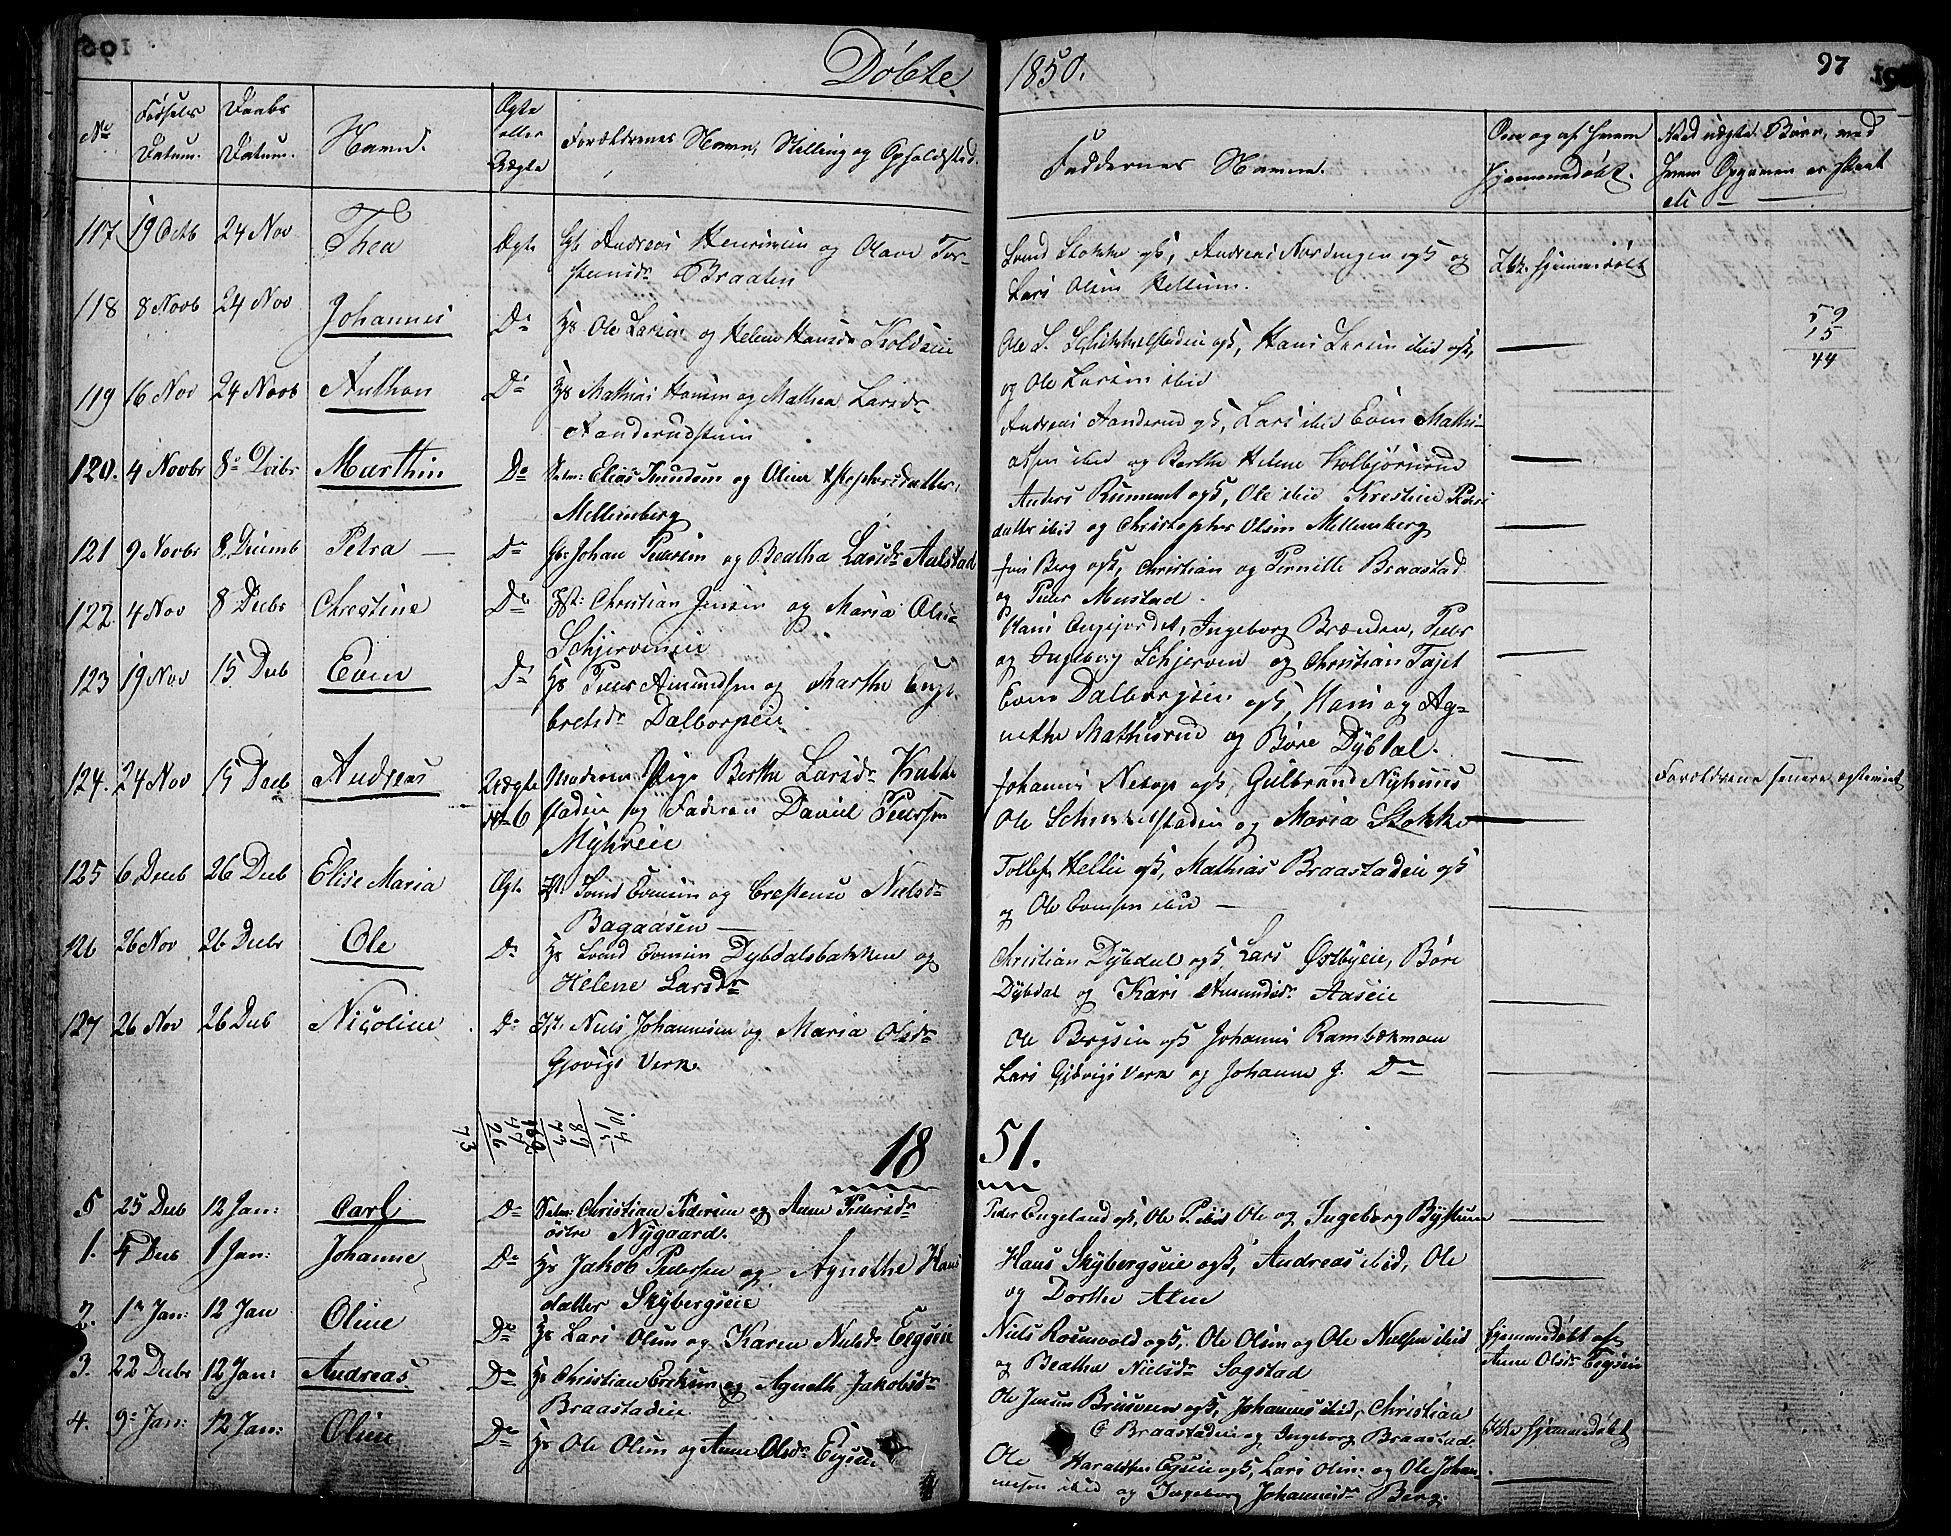 Døbte 1850. 97
No
Fødsels Datum.
Daabs Datum.
Navn.
Ægte eller Uægte
Forældrenes Navn, Stilling og Opholdssted.
Faddernes Navne.
Om og af hvem hjemmedøbt.
117 19 Octb 24 Nov Thea Ægte Andreas Henriksen og Olave Tor-
stensdr Braaten
Svend Stokke gb, Andreas Nordengen gb og
Lars Olsen Hellum.
Ikke hjemmedøbt
118 8 Novb 24 Nov Johannes Do Hs Ole Larsen og Helene Hansdr Koldseie
Ole L. Schikkelstadeie gb, Hans Larsen ibid gb,
og Ole Larsen ibid
59
15
44
119 16 Nov 24 Novb Anthon Do Hs Mathias Hansen og Mathea Larsdr
Aanderudstuen
Andreas Aanderud gb, Lars ibid Even Mathi-
assen ibid og Berthe Helene Kolbjørnsrud
120. 4 Novbr 8 Decbr Marthin Do Elias Knudsen og Oline Christophersdatter,
Mellemberg
Anders Rumment gb, Ole ibid Kristine Peders
datter ibid og Christopher Olsen Mellemberg
121 9 Novbr 8 Decemb Petra Do Johan Pedersen og Beatha Larsdr Aalstad
Berg gb, Christian og Pernille Braastad
og Peder Mustad.
122. 4 Nov 8 Decbr Christine Do Christian Jensen og Maria Olsdr
Schjerveneie
Hans Engejordet, Ingeborg Brænden, Peder
og Ingeborg Schjerven og Christian Fajet
123 19 Nov 15 Decb Even Do Hs Peder Amundsen og Marthe Enge-
bretsdr Dalborgseie
Even Dalborgseie gb, Hans og Ag-
nethe Mathisrud og Børe Dybdal.
124. 24 Nov 15 Decb Andreas Uægte No 6 Moderen Pige Berthe Larsdr
stadeie og Faderen Daniel Pedersen
Myhreeie
Johannes Netop gb, Gulbrand Nyhuus
Ole Schikkelstadeie og Maria Stokke
Forældrene senere ægteviet
125 6 Decb 26 Decb Elise Maria Ægte Svend Evensen og Crestense Nielsdr
Bagaasen
Tollef Hellie gb, Mathias Braastadeie gb
og Ole Evensen ibid
126 26 Nov 26 Decbr Ole Do Hs Svend Evensen Dybdalsbakken og
Helene Larsdr
Christian Dybdal gb Lars Østbyeie, Børe
Dybdal og Kari Amundsdr Aaseie
127 26 Nov 26 Decb Nicoline Do Niels Johannesen og Maria Olsdr
Gjøvigs Verk
Ole Bergseie gb Johannes Rambækmoen
Lars Gjøvigs Verk og Johanne J. Do
1851.
5 25 Decb 12 Jan: Carl Do Christian Pedersen og Anne Pedersdr
østre Nygaard.
Peder Engeland gb, Ole P. ibid Ole og Ingeborg Bjstuen
1. 5 Decb 1 Jan: Johanne Do Hs Jakob Pedersen og Agnethe Hans
datter Skybergseie
Hans Skybergseie gb, Andreas ibid, Ole
og Dorthe Alm
2. 1 Jan: 12 Jan Oline Do Hs Lars Olsen og Karen Nielsdr Eegseie
Niels Rosenvold gb, Ole Olsen og Ole Nielsen ibid
og Beathe Nielsdr Sogstad
hjemmedøbt af
Anne Olsdr Eegseie
3. 22 Decbr 12 Jan: Andreas Do Hs Christian Eriksen og Agneth Jakobsdr
Braastadeie
Ole Jensen Bruusveen gb, Johannes ibid, Christian
E Braastadeie og Ingeborg Braastad
Ikke hjemmedøbt
4. 9 Jan: 12 Jan: Oline Do Hs Ole Olsen og Anne Olsdr Eegseie
Ole Haraldsen Eegseie gb, Lars Olsen og Ole Johan-
nesen ibid og Ingeborg Johannesdr Berg.